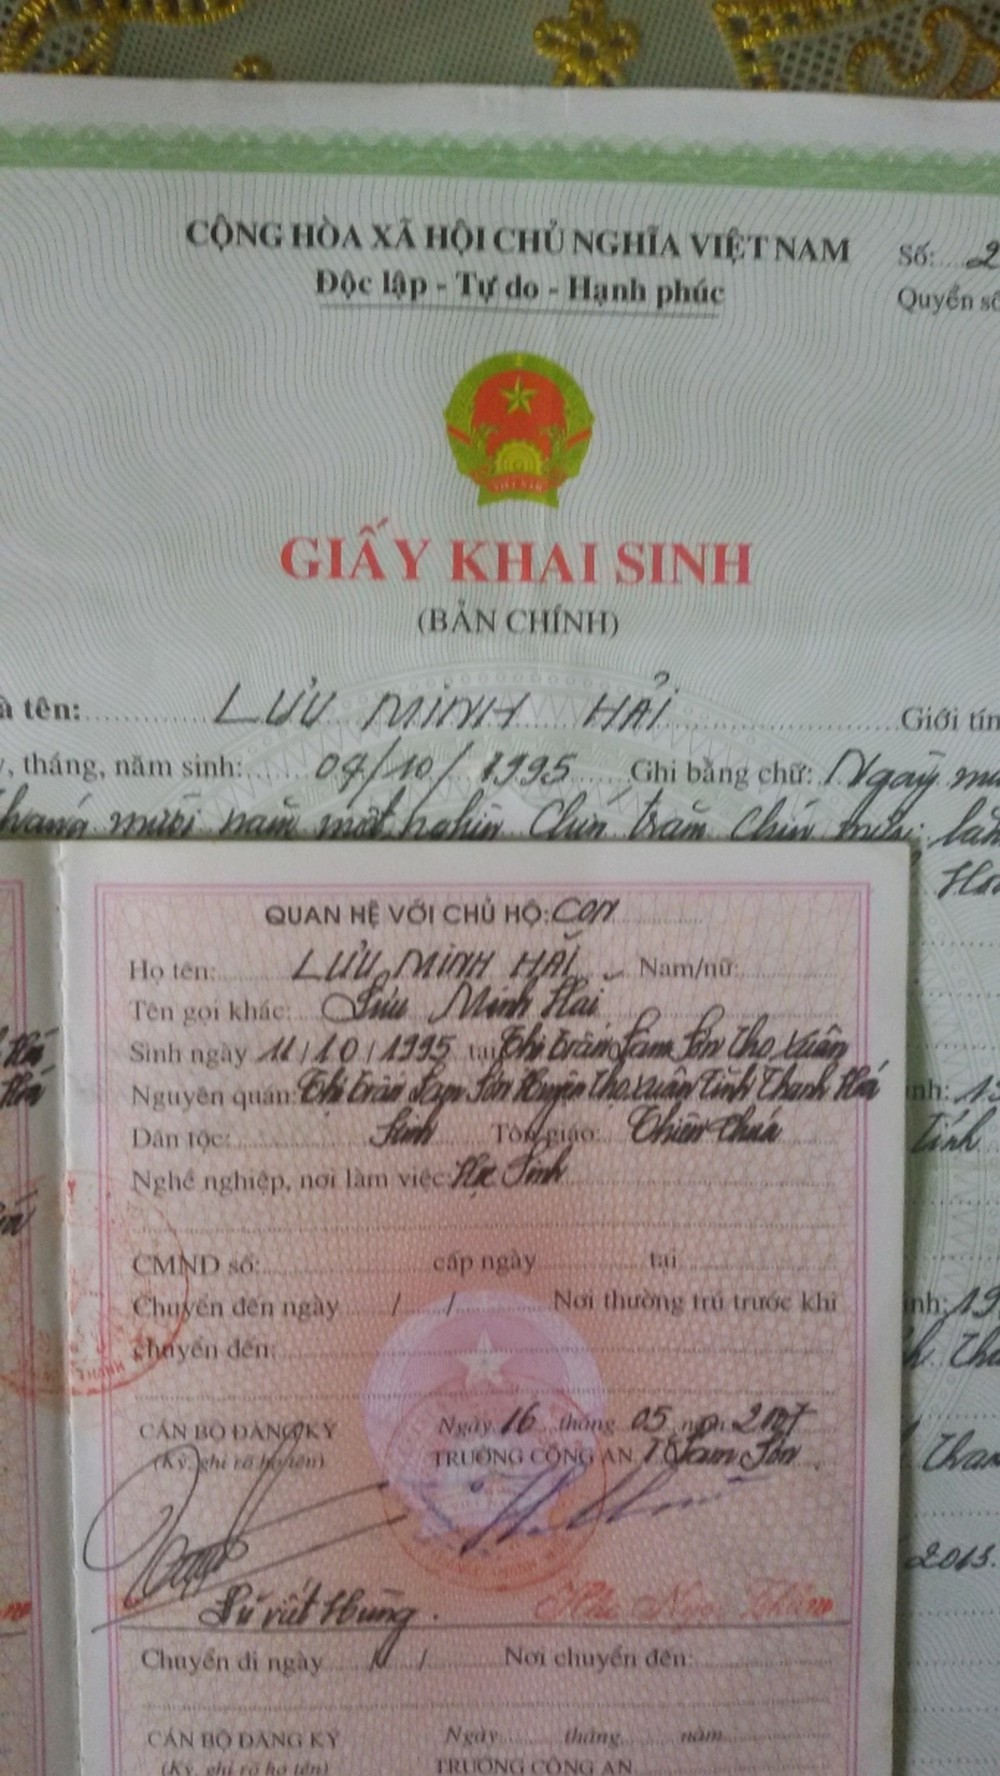 CỘNG HÒA XÃ HỘI CHỦ NGHĨA VIỆT NAM
Độc lập - Tự do - Hạnh phúc
Số: 2
Quyển số
VIỆT NAM
GIẤY KHAI SINH
(BẢN CHÍNH)
à tên: LƯU MINH HẢI Giới tín
, tháng, năm sinh: 04/10/1995 Ghi bằng chữ: Ngày mù
tháng mười năm một nghìn chín trăm chín mươi lăm
QUAN HỆ VỚI CHỦ HỘ: CON
Họ tên: LƯU MINH HẢI Nam/nữ:
Tên gọi khác: Lưu Minh Hải
Sinh ngày 11/10/1995 tại Thị trấn Lam Sơn Thọ Xuân
Nguyên quán: Thị trấn Lam Sơn Huyện Thọ Xuân Tỉnh Thanh Hoá
Dân tộc: Kinh Tôn giáo: Thiên Chúa
Nghề nghiệp, nơi làm việc: Học Sinh
CMND số: cấp ngày tại
Chuyển đến ngày / / Nơi thường trú trước khi
chuyển đến:
CÁN BỘ ĐĂNG KÝ Ngày 16 tháng 05 năm 2007
(Ký, ghi rõ họ tên) TRƯỞNG CÔNG AN T Lam Sơn
Lê viết Hùng
Chuyển đi ngày / / Nơi chuyển đến:
CÁN BỘ ĐĂNG KÝ Ngày tháng năm
(Ký, ghi rõ họ tên) TRƯỞNG CÔNG AN
nh: 19
Tỉnh
nh: 19
2013.